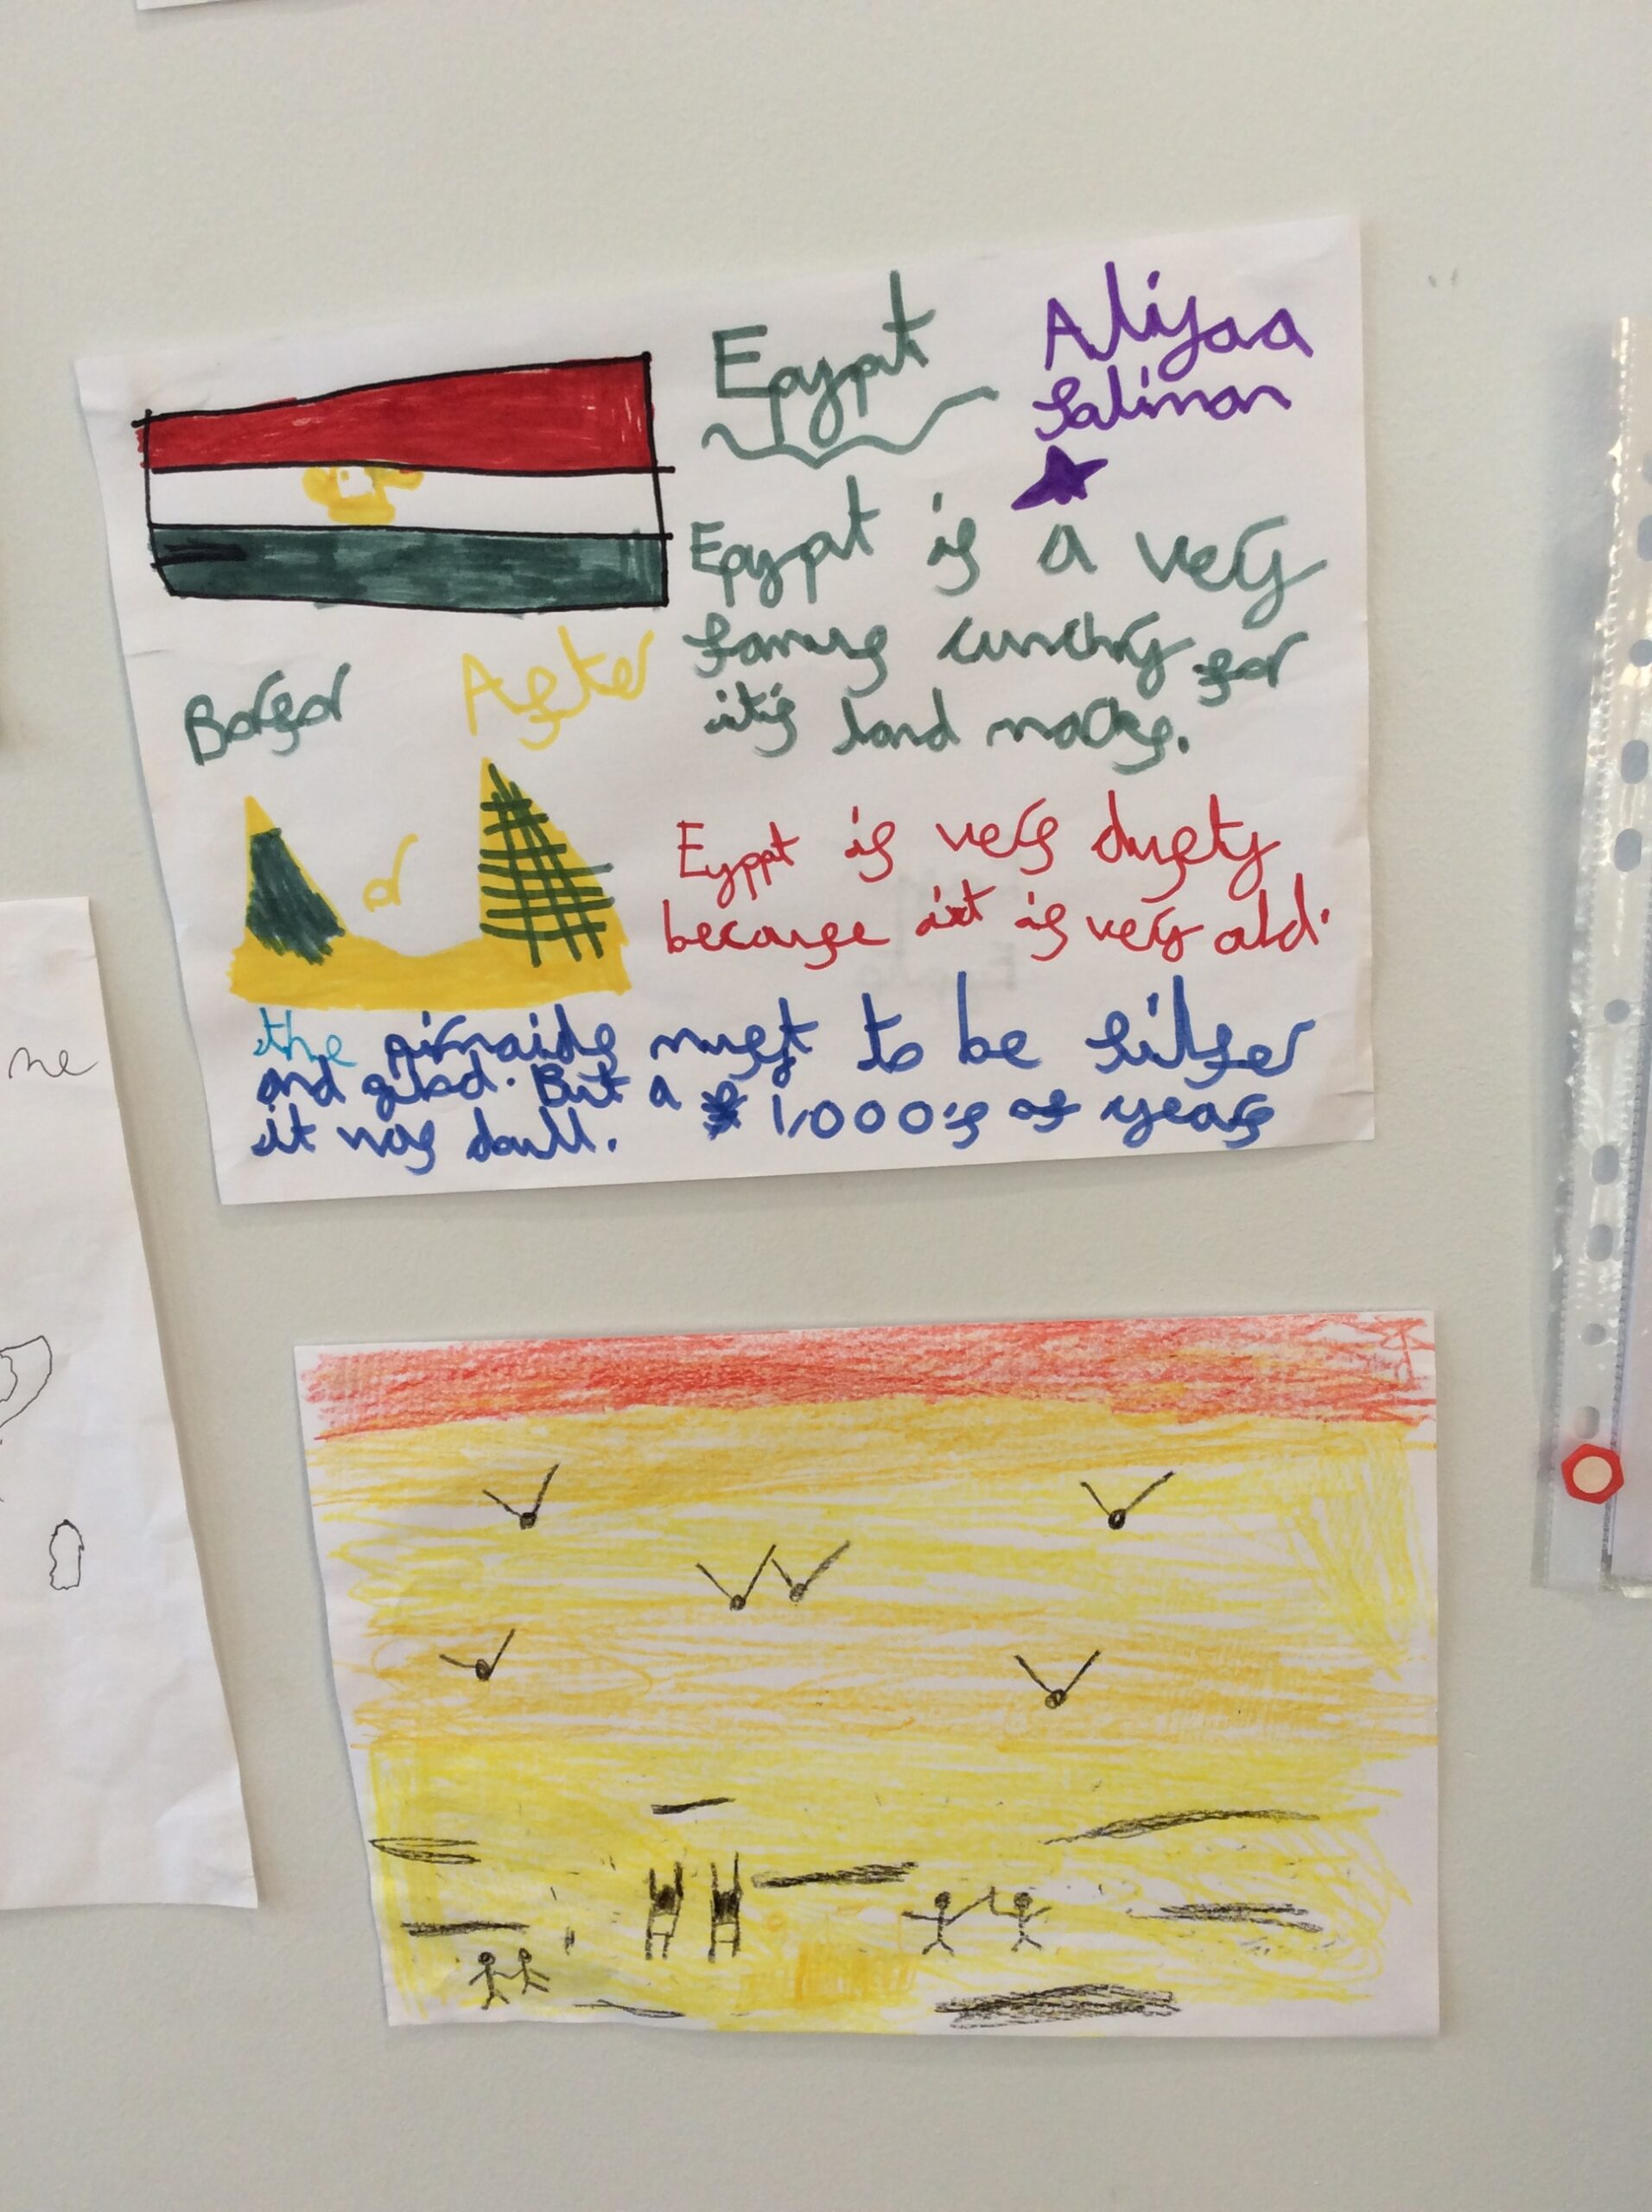 Epypt
Aliyaa
Saliman
Epypt is a very
famus cunchry for
it's land marks.
Borfor
After
or
Eyppt is very dusty
because it is very old.
the pirmaids must to be silfer
and gilod. But a 1,000's of years
it was daull.
me